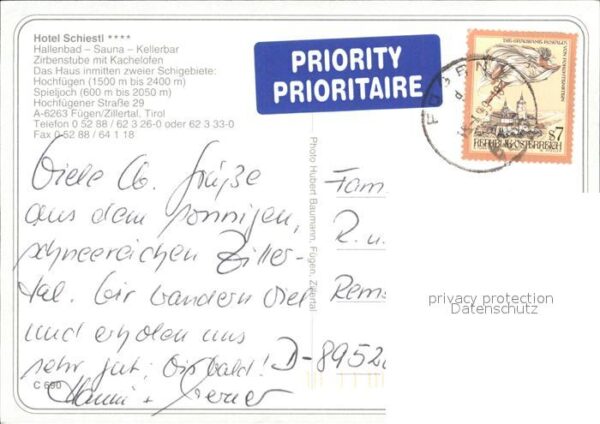 Hotel Schiestl ****
Hallenbad – Sauna – Kellerbar
Zirbenstube mit Kachelofen
Das Haus inmitten zweier Schigebiete:
Hochfügen (1500 m bis 2400 m)
Spieljoch (600 m bis 2050 m)
Hochfügener Straße 29
A-6263 Fügen/Zillertal, Tirol
Telefon 0 52 88 / 62 3 26-0 oder 62 3 33-0
Fax 0 52 88 / 64 1 18
PRIORITY
PRIORITAIRE
S7
REPUBLIK ÖSTERREICH
Viele lb. Grüße
aus dem sonnigen,
schneereichen Ziller-
tal. Wir wandern viel
und erholen uns
sehr gut, bis bald!
Hanni + Werner
C 690
Photo Hubert Baumann, Fügen, Zillertal
Fam
R. u.
Rems
D-8952
privacy protection
Datenschutz